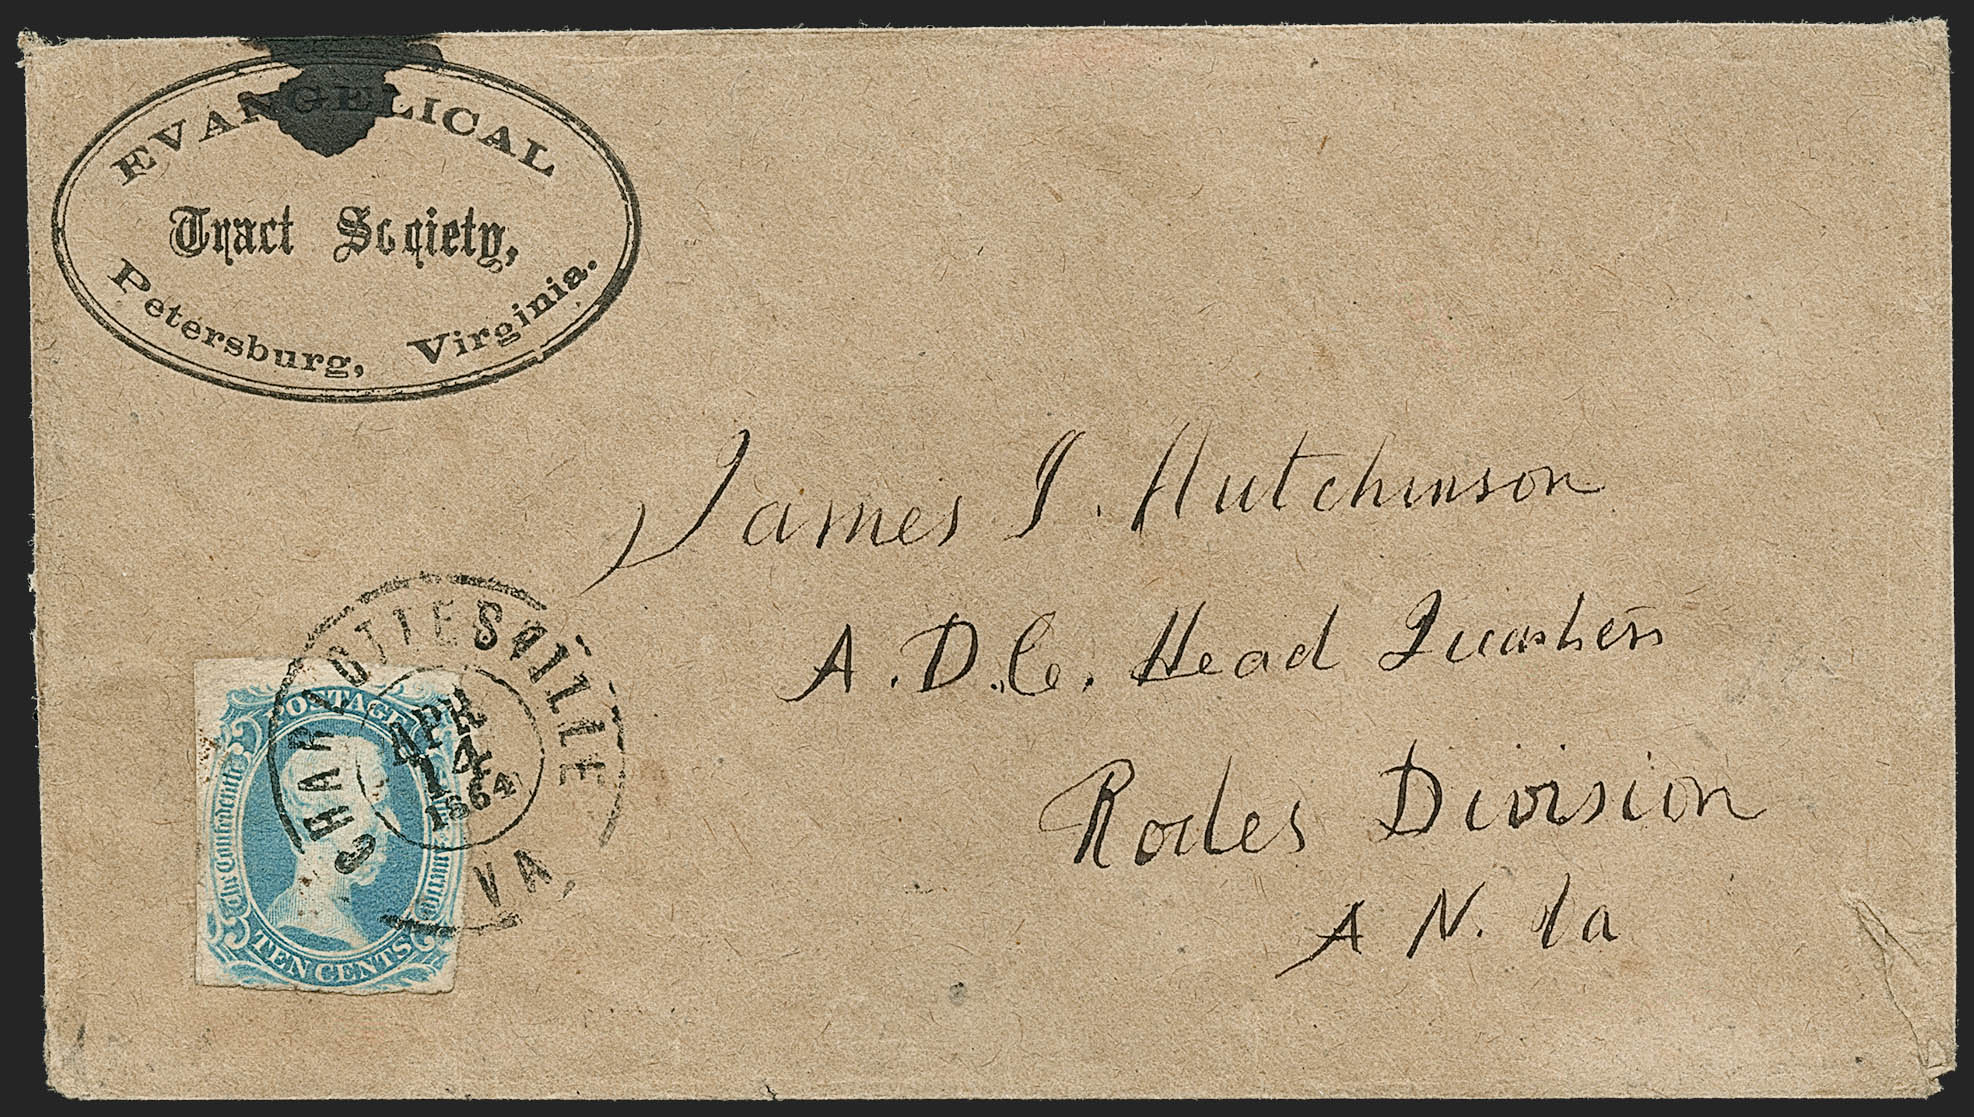 EVANGELICAL
Tract Society,
Petersburg, Virginia.
James I. Hutchinson
A.D.C. Head Quarters
Rodes Division
A N. Va
CHARLOTTESVILLE
APR
4
1
1864
VA.
POSTAGE
The Confederate
TEN CENTS